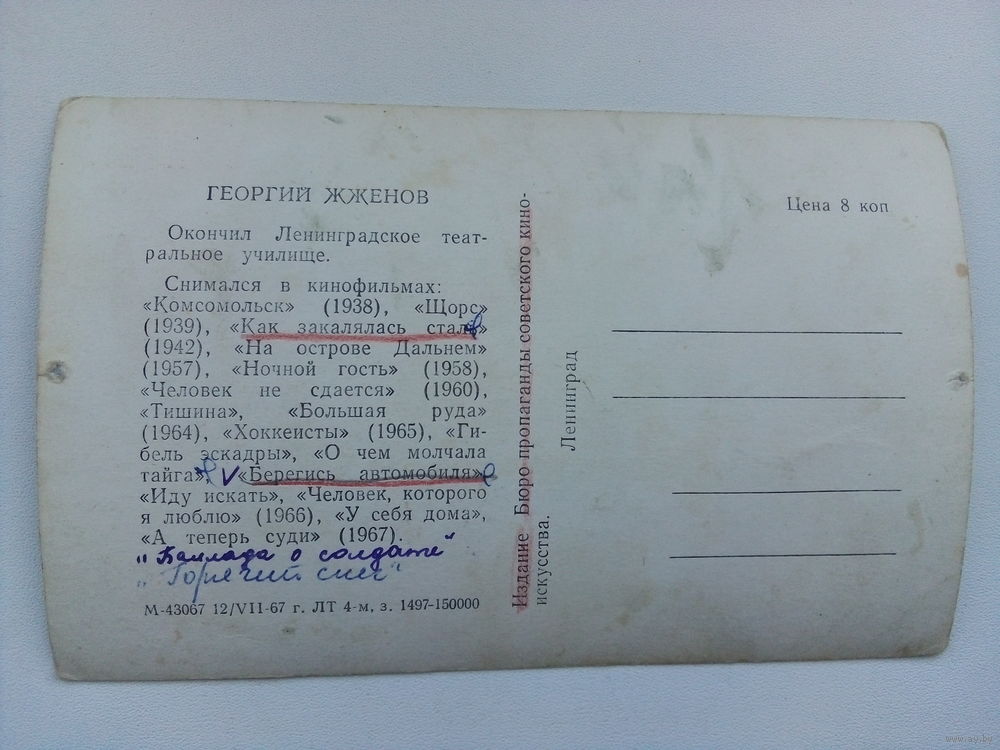 ГЕОРГИЙ ЖЖЕНОВ
Окончил Ленинградское теат-
ральное училище.
Снимался в кинофильмах:
«Комсомольск» (1938), «Щорс»
(1939), «Как закалялась сталь»
(1942), «На острове Дальнем»
(1957), «Ночной гость» (1958),
«Человек не сдается» (1960),
«Тишина», «Большая руда»
(1964), «Хоккеисты» (1965), «Ги-
бель эскадры», «О чем молчала
тайга», V «Берегись автомобиля»,
«Иду искать», «Человек, которого
я люблю» (1966), «У себя дома»,
«А теперь суди» (1967).
„Баллада о солдате"
„Горячий снег"
М-43067 12/VII-67 г. ЛТ 4-м, з. 1497-150000
Издание Бюро пропаганды советского кино-
искусства.
Ленинград
Цена 8 коп
www.ay.by